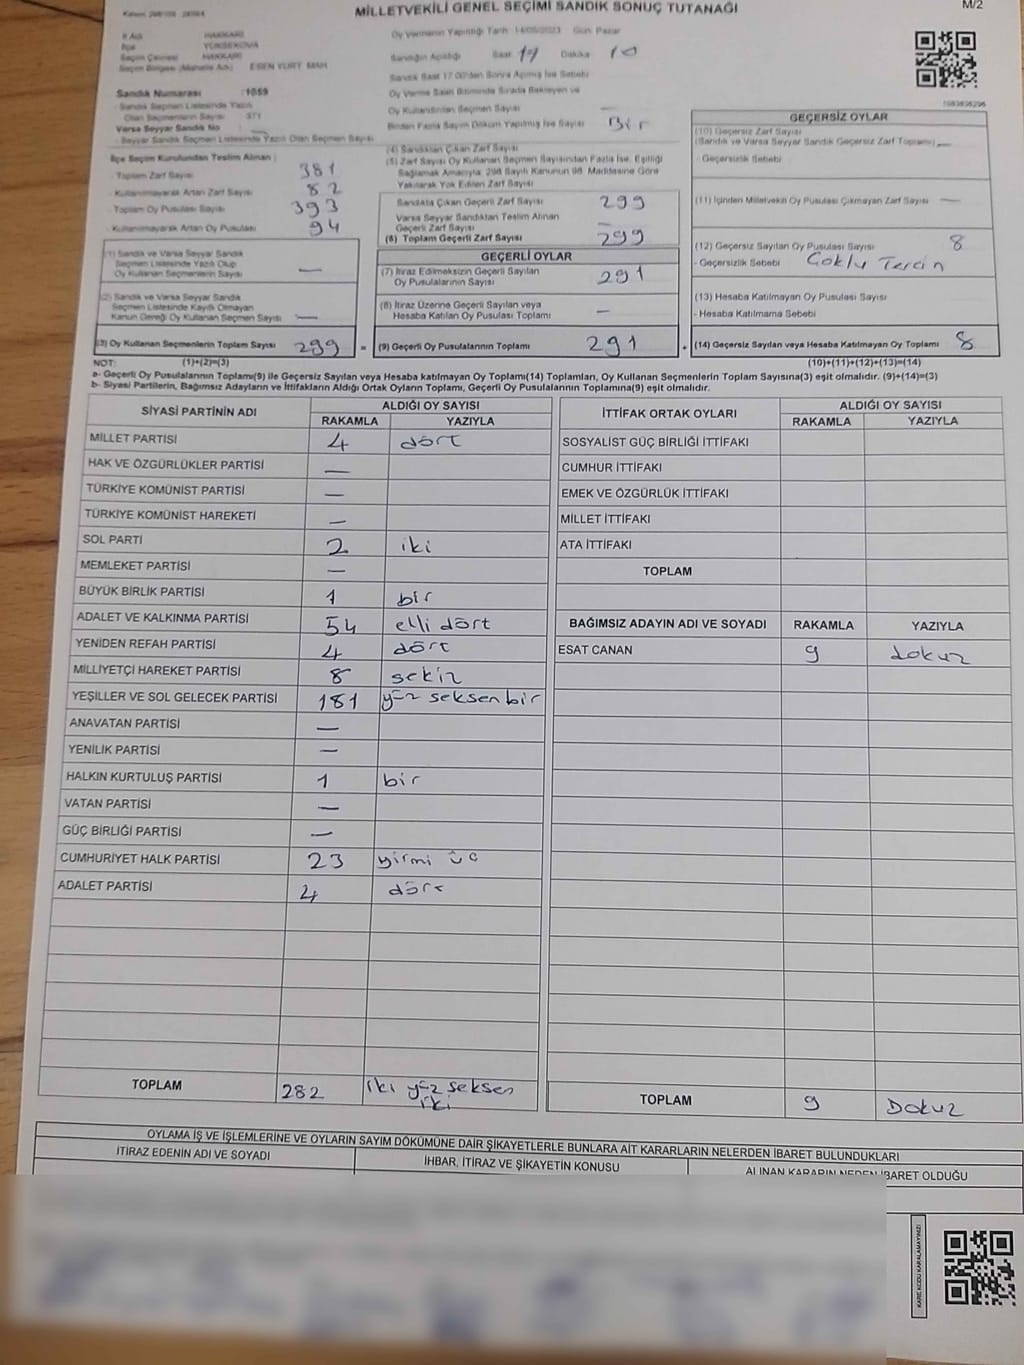 MİLLETVEKİLİ GENEL SEÇİMİ SANDIK SONUÇ TUTANAĞI
M/2
İl Adı HAKKARİ
İlçe YÜKSEKOVA
Seçim Çevresi HAKKARİ
Seçim Bölgesi (Mahalle Adı) ESEN YURT MAH.
Sandık Numarası :1059
- Sandık Seçmen Listesinde Yazılı
Olan Seçmenlerin Sayısı 371
Varsa Seyyar Sandık No
- Seyyar Sandık Seçmen Listesinde Yazılı Olan Seçmen Sayısı
İlçe Seçim Kurulundan Teslim Alınan :
- Toplam Zarf Sayısı 381
- Kullanılmayarak Artan Zarf Sayısı 82
- Toplam Oy Pusulası Sayısı 393
- Kullanılmayarak Artan Oy Pusulası 94
(1) Sandık ve Varsa Seyyar Sandık
Seçmen Listesinde Yazılı Olup
Oy Kullanan Seçmenlerin Sayısı —
(2) Sandık ve Varsa Seyyar Sandık
Seçmen Listesinde Kaydı Olmayan
Kanun Gereği Oy Kullanan Seçmen Sayısı —
(3) Oy Kullanan Seçmenlerin Toplam Sayısı 299 =
Oy Vermenin Yapıldığı Tarih 14/05/2023 Gün: Pazar
Sandığın Açıldığı Saat 17 Dakika 10
Sandık Saat 17:00'den Sonra Açılmış İse Sebebi
Oy Verme Saati Bitiminde Sırada Bekleyen ve
Oy Kullandırılan Seçmen Sayısı —
Birden Fazla Sayım Döküm Yapılmış İse Sayısı Bir
(4) Sandıktan Çıkan Zarf Sayısı
(5) Zarf Sayısı Oy Kullanan Seçmen Sayısından Fazla İse, Eşitliği
Sağlamak Amacıyla, 298 Sayılı Kanunun 98. Maddesine Göre
Yakılarak Yok Edilen Zarf Sayısı
Sandıkta Çıkan Geçerli Zarf Sayısı 299
Varsa Seyyar Sandıktan Teslim Alınan
Geçerli Zarf Sayısı —
(6) Toplam Geçerli Zarf Sayısı 299
GEÇERLİ OYLAR
(7) İtiraz Edilmeksizin Geçerli Sayılan
Oy Pusulalarının Sayısı 291
(8) İtiraz Üzerine Geçerli Sayılan veya
Hesaba Katılan Oy Pusulası Toplamı —
(9) Geçerli Oy Pusulalarının Toplamı 291 +
GEÇERSİZ OYLAR
(10) Geçersiz Zarf Sayısı
(Sandık ve Varsa Seyyar Sandık Geçersiz Zarf Toplamı) —
- Geçersizlik Sebebi
(11) İçinden Milletvekili Oy Pusulası Çıkmayan Zarf Sayısı —
(12) Geçersiz Sayılan Oy Pusulası Sayısı 8
- Geçersizlik Sebebi Çoklu Tercih
(13) Hesaba Katılmayan Oy Pusulası Sayısı
- Hesaba Katılmama Sebebi
(14) Geçersiz Sayılan veya Hesaba Katılmayan Oy Toplamı 8
NOT: (1)+(2)=(3) (10)+(11)+(12)+(13)=(14)
a- Geçerli Oy Pusulasının Toplamı(9) ile Geçersiz Sayılan veya Hesaba katılmayan Oy Toplamı(14) Toplamları, Oy Kullanan Seçmenlerin Toplam Sayısına(3) eşit olmalıdır. (9)+(14)=(3)
b- Siyasi Partilerin, Bağımsız Adayların ve İttifakların Aldığı Ortak Oyların Toplamı, Geçerli Oy Pusulalarının Toplamına(9) eşit olmalıdır.
SİYASİ PARTİNİN ADI ALDIĞI OY SAYISI
RAKAMLA YAZIYLA
MİLLET PARTİSİ 4 dört
HAK VE ÖZGÜRLÜKLER PARTİSİ —
TÜRKİYE KOMÜNİST PARTİSİ —
TÜRKİYE KOMÜNİST HAREKETİ —
SOL PARTİ 2 iki
MEMLEKET PARTİSİ —
BÜYÜK BİRLİK PARTİSİ 1 bir
ADALET VE KALKINMA PARTİSİ 54 elli dört
YENİDEN REFAH PARTİSİ 4 dört
MİLLİYETÇİ HAREKET PARTİSİ 8 sekiz
YEŞİLLER VE SOL GELECEK PARTİSİ 181 yüz seksen bir
ANAVATAN PARTİSİ —
YENİLİK PARTİSİ —
HALKIN KURTULUŞ PARTİSİ 1 bir
VATAN PARTİSİ —
GÜÇ BİRLİĞİ PARTİSİ —
CUMHURİYET HALK PARTİSİ 23 yirmi üç
ADALET PARTİSİ 4 dört
TOPLAM 282 iki yüz seksen
iki
İTTİFAK ORTAK OYLARI ALDIĞI OY SAYISI
RAKAMLA YAZIYLA
SOSYALİST GÜÇ BİRLİĞİ İTTİFAKI
CUMHUR İTTİFAKI
EMEK VE ÖZGÜRLÜK İTTİFAKI
MİLLET İTTİFAKI
ATA İTTİFAKI
TOPLAM
BAĞIMSIZ ADAYIN ADI VE SOYADI RAKAMLA YAZIYLA
ESAT CANAN 9 dokuz
TOPLAM 9 Dokuz
OYLAMA İŞ VE İŞLEMLERİNE VE OYLARIN SAYIM DÖKÜMÜNE DAİR ŞİKAYETLERLE BUNLARA AİT KARARLARIN NELERDEN İBARET BULUNDUKLARI
İTİRAZ EDENİN ADI VE SOYADI İHBAR, İTİRAZ VE ŞİKAYETİN KONUSU ALINAN KARARIN NEDEN İBARET OLDUĞU
KARE KODU KARALAMAYINIZ!